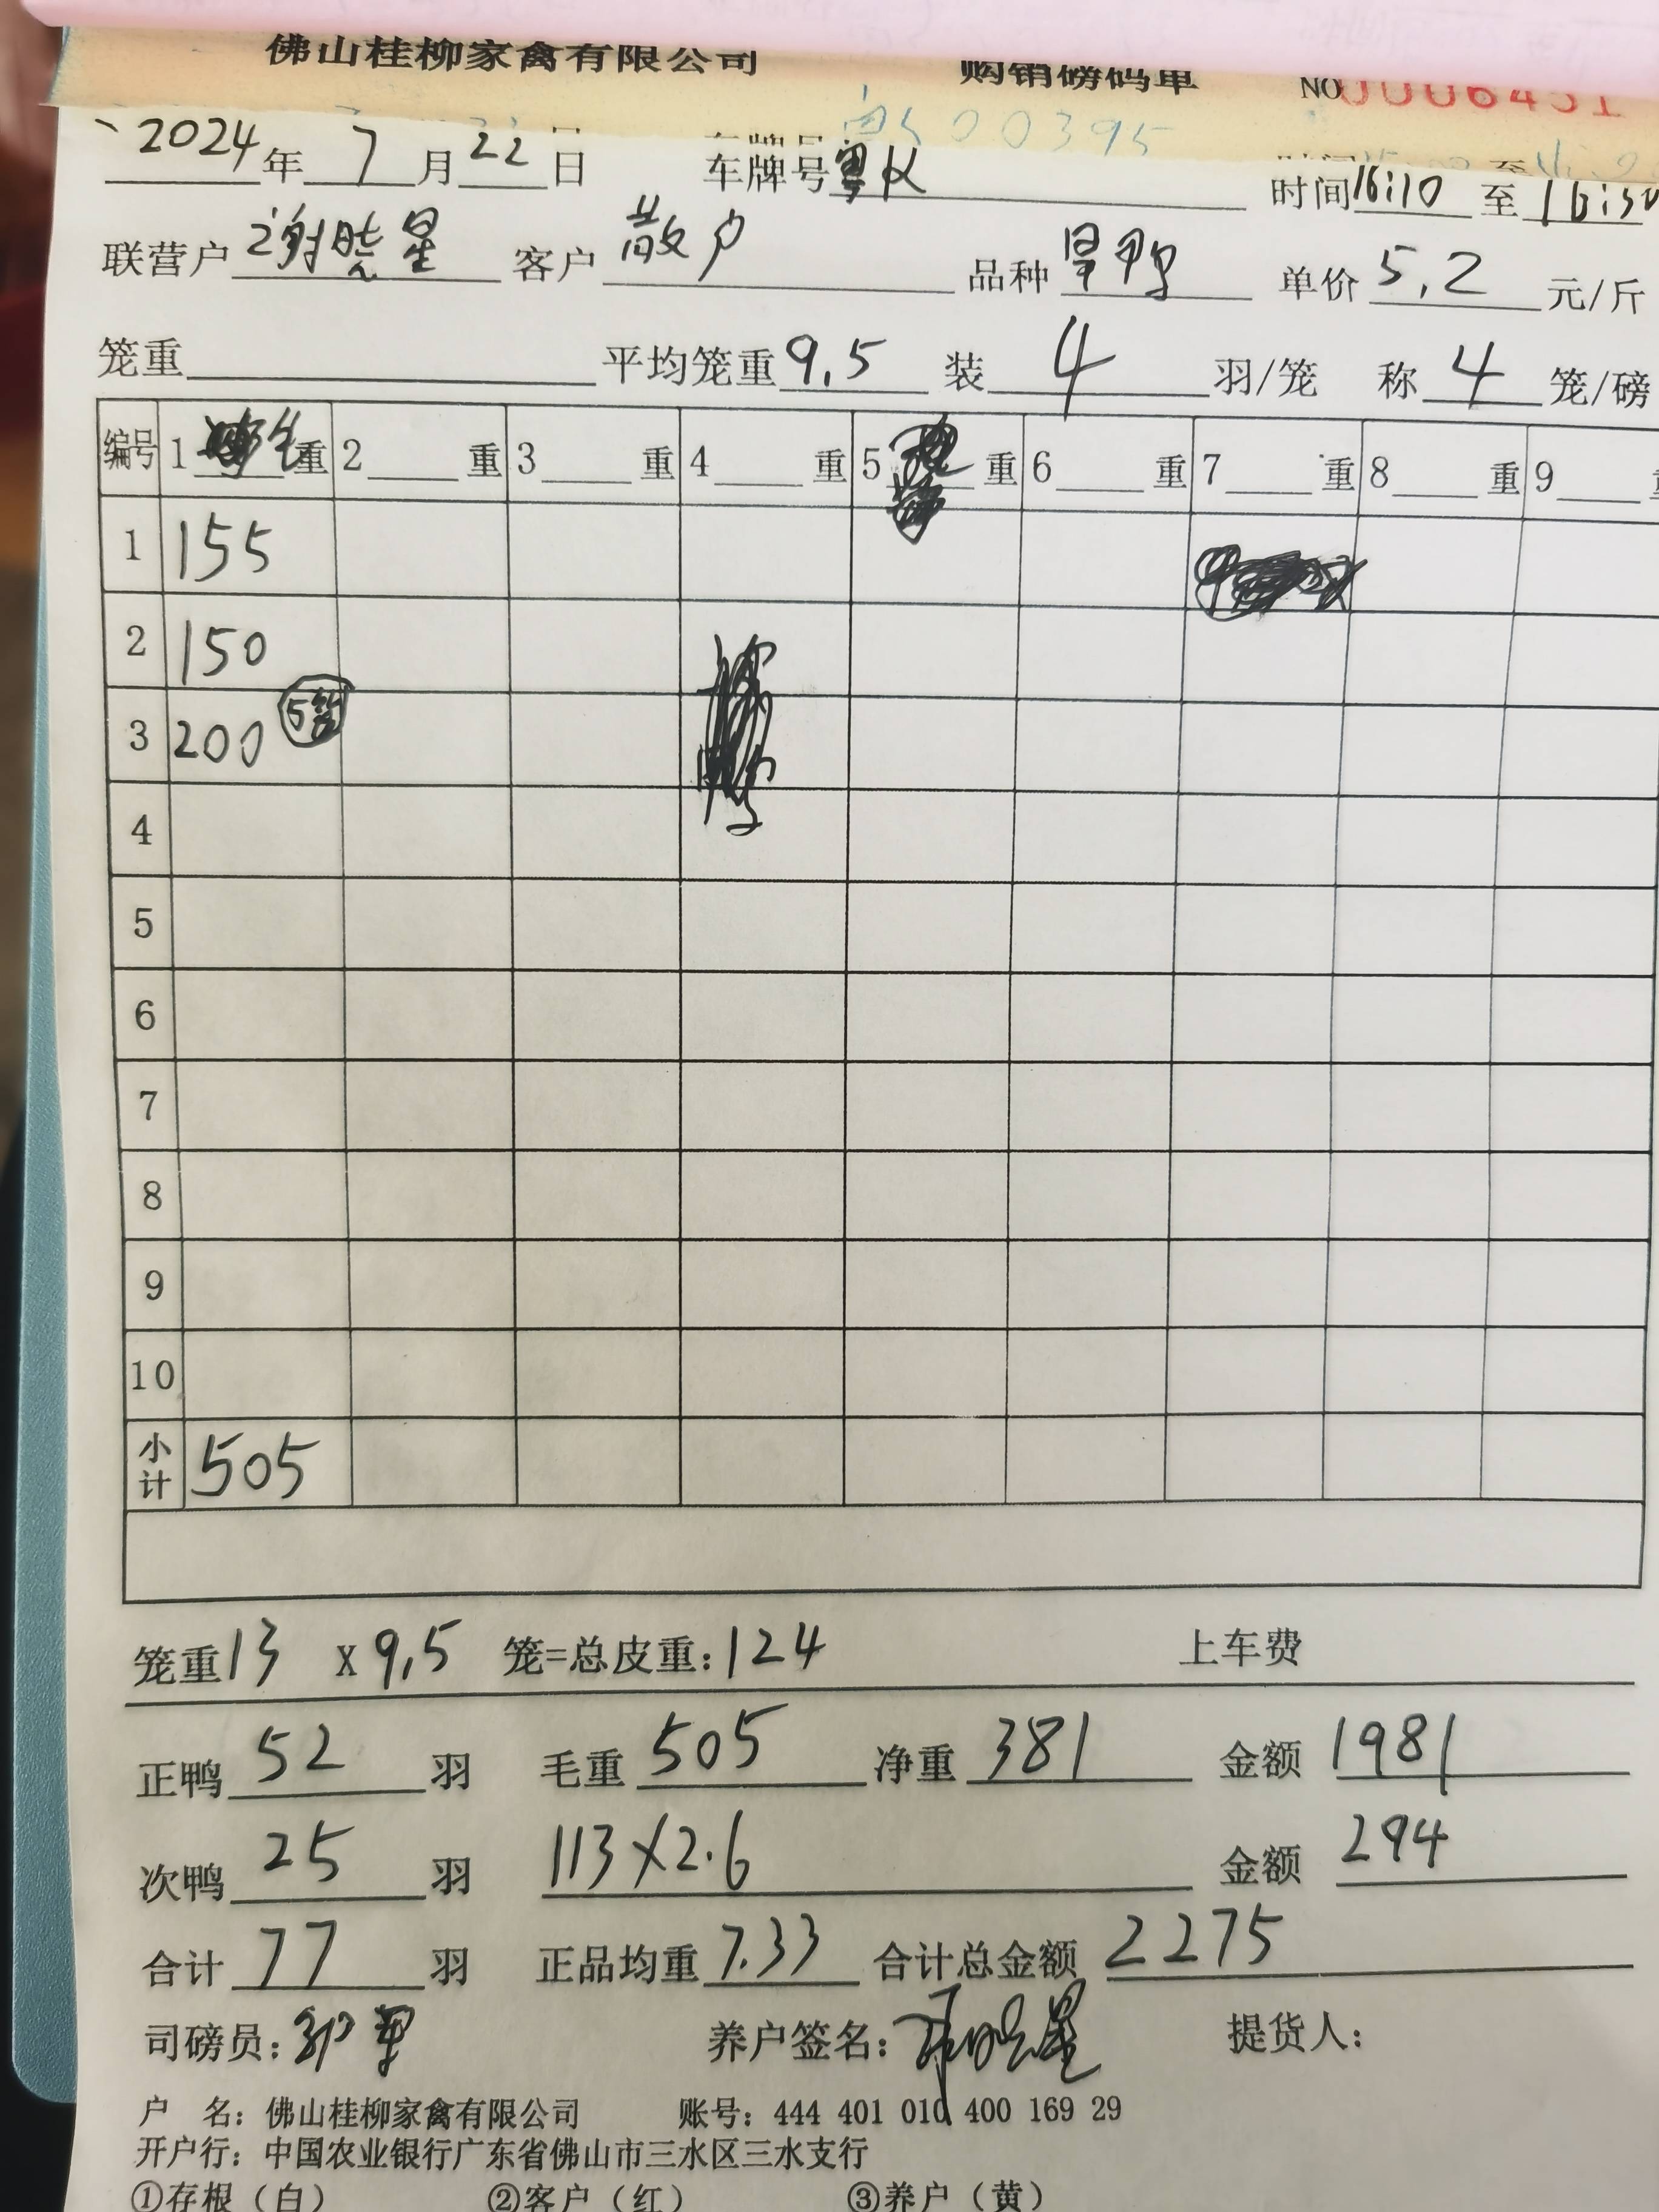 佛山桂柳家禽有限公司 购销磅码单 NO 0006451
车牌号 00395
2024年7月22日 车牌号 时间16:10至16:30
联营户谢晓星 客户散户 品种旱鸭 单价5.2元/斤
笼重 平均笼重9.5 装4羽/笼 称4笼/磅
编号 1 重 2 重 3 重 4 重 5 重 6 重 7 重 8 重 9
1 155
2 150
3 200 5笼
4
5
6
7
8
9
10
小计 505
笼重13 X 9.5 笼=总皮重:124 上车费
正鸭52羽 毛重505 净重381 金额1981
次鸭25羽 113×2.6 金额294
合计77羽 正品均重7.33 合计总金额2275
司磅员: 养户签名: 提货人:
户 名: 佛山桂柳家禽有限公司 账号: 444 401 010 400 169 29
开户行: 中国农业银行广东省佛山市三水区三水支行
①存根（白） ②客户（红） ③养户（黄）